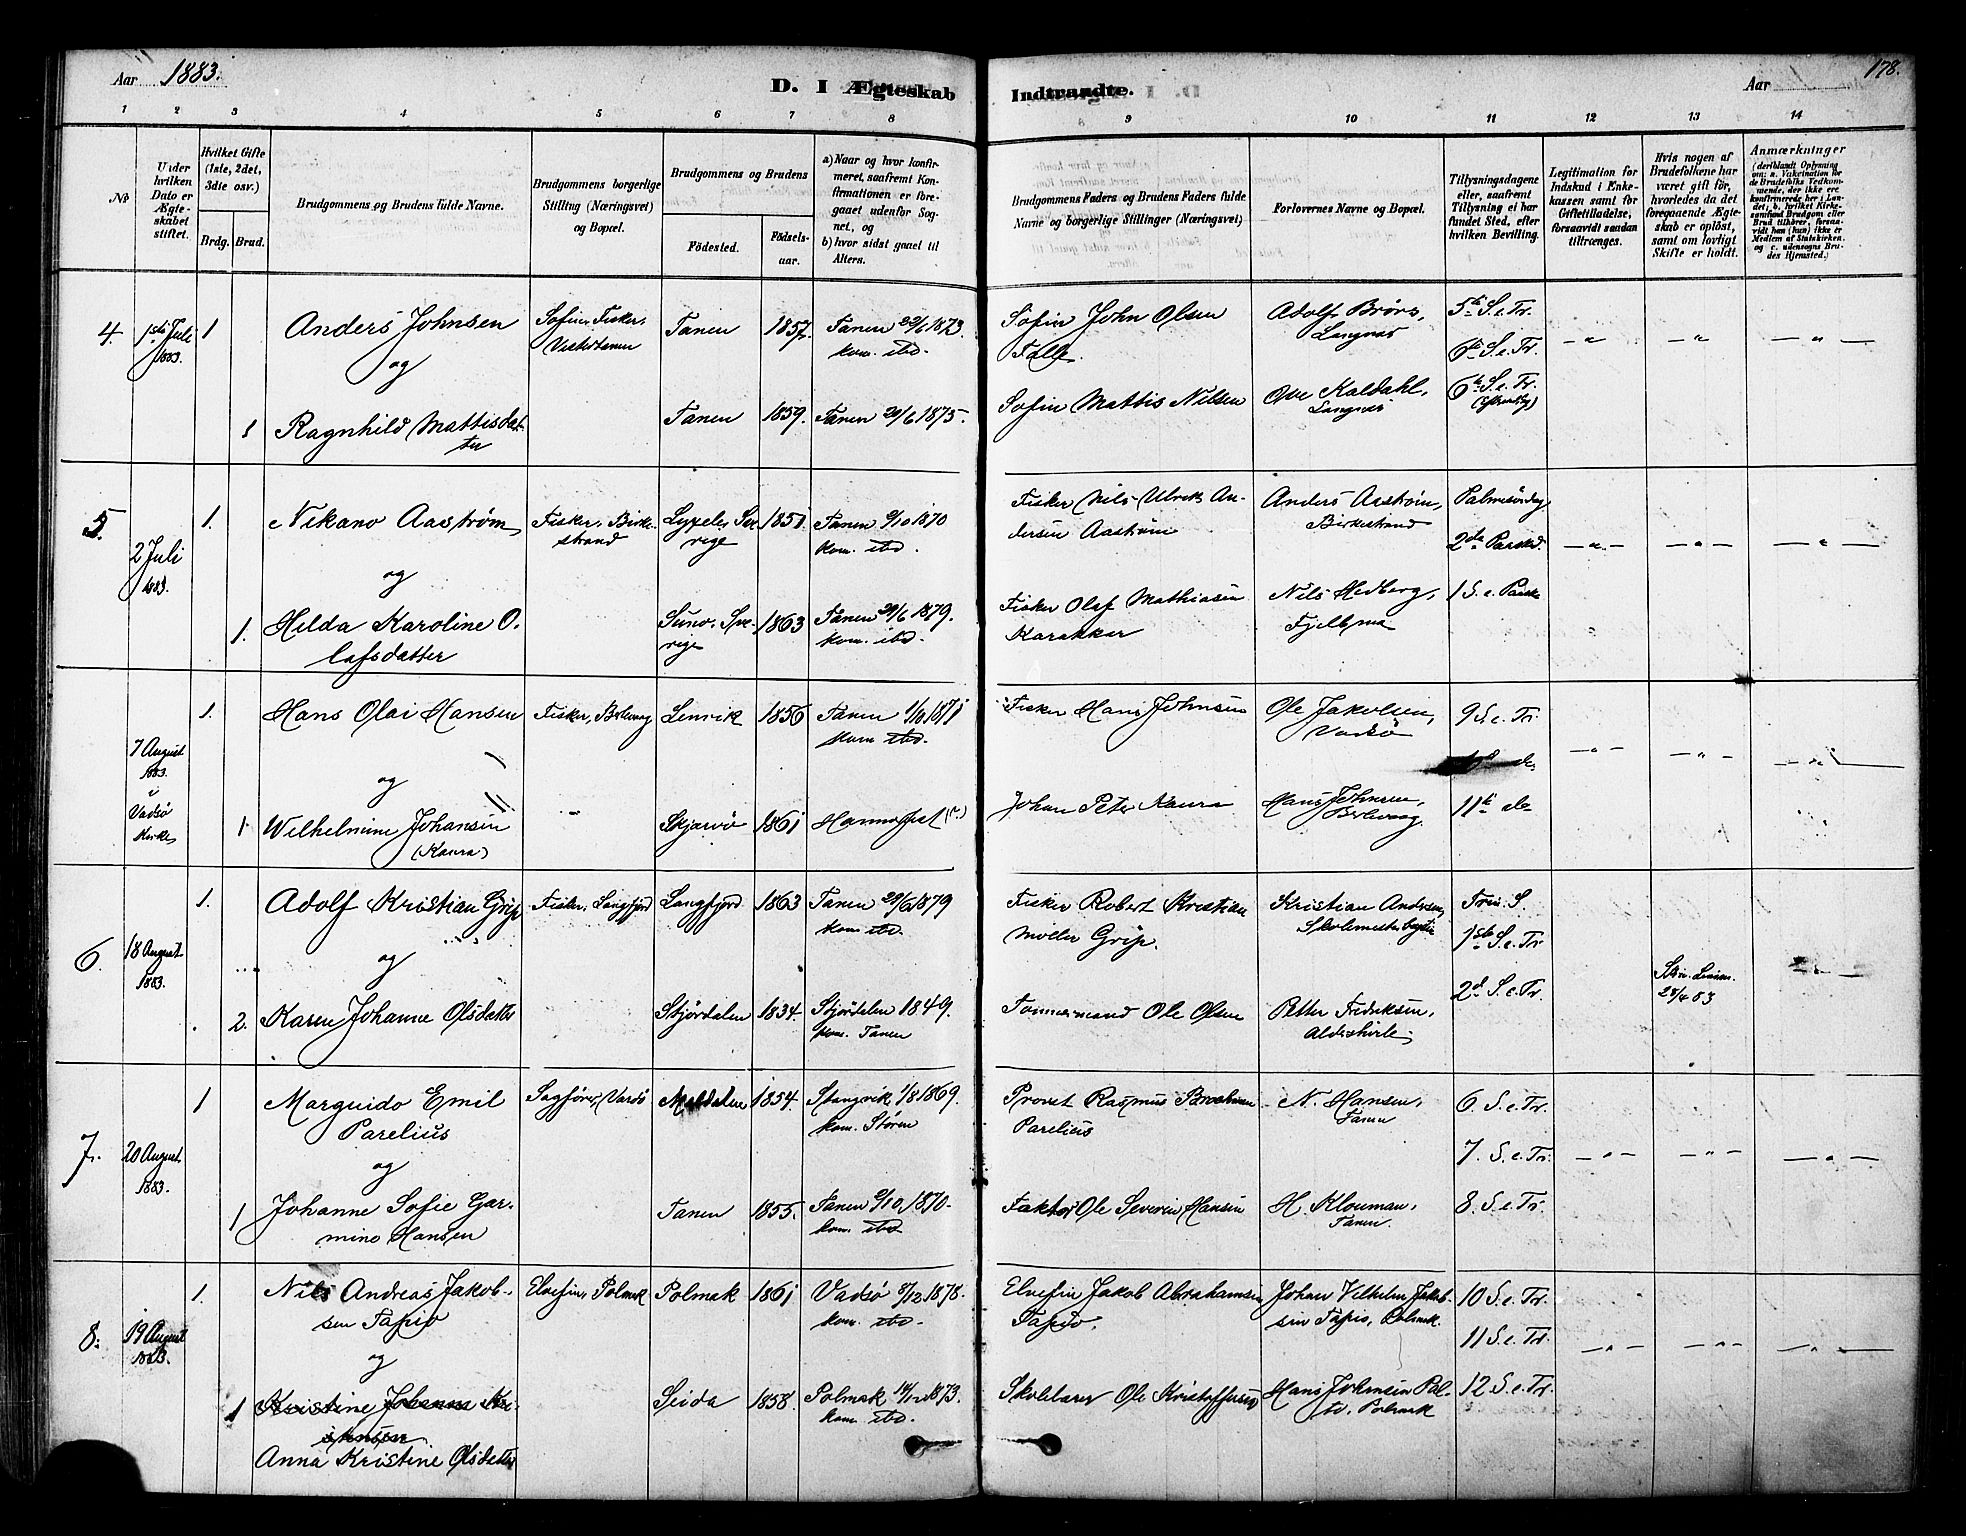 Aar 1883.
D. I Ægteskab
Indtraadte.
Aar
178.
1 2 3 4 5 6 7 8 9 10 11 12 13 14
No
Under hvilken Dato er Ægteskabet stiftet.
Hvilket Gifte (1ste, 2det, 3die osv.)
Brdg. Brud.
Brudgommens og Brudens fulde Navne.
Brudgommens borgerlige Stilling (Næringsvei) og Bopæl.
Brudgommens og Brudens
Fødested.
Fødselsaar.
a) Naar og hvor konfirmeret, saafremt Konfirmationen er foregaaet udenfor Sognet, og
b) hvor sidst gaaet til Alters.
Brudgommens Faders og Brudens Faders fulde Navne og borgerlige Stillinger (Næringsvei)
Forlovernes Navne og Bopæl.
Tillysningsdagene eller, saafremt Tillysning ei har fundet Sted, efter hvilken Bevilling.
Legitimation for Indskud i Enkekassen samt for Giftetilladelse, forsaavidt saadan tiltrænges.
Hvis nogen af Brudefolkene har været gift før, hvorledes da det foregaaende Ægteskab er opløst, samt om lovligt Skifte er holdt.
Anmærkninger
4 1ste Juli 1883 1 Anders Johnsen Søfin, Fisker, Vestertanen Tanen 1857. Tanen 22/6 1873. kom. ibd. Søfin John Olsen Adolf Brørs, Langnæs 5te S. e. Tr.
6te S. e. Tr. — " — — " — — " —
og
1 Ragnhild Mattisdatter Tanen 1859. Tanen 20/6 1875. Søfin Mattis Nilsen Ove Kaldahl, Langnæs 6te S. e. Tr.
5. 2 Juli 1883. 1. Nikano Aastrøm Fisker, Birkestrand Sverige 1851. Tanen 9/10 1870 kom. ibd. Fisker Nils Ulrik Andersen Aastrøm Anders Aastrøm, Birkestrand Palmesøndag
2den Paaskd. — " — — " — — " —
og
1. Hilda Karoline Olafsdatter Sverige 1863 Tanen 29/6 1879. kom. ibd. Fisker Olaf Mathiasen Nils Hedberg, 1 S. e. Paaske
7 August 1883. i Vadsø Kirke 1. Hans Olai Hansen Fisker, Berlevaag Lenvik 1856 Tanen 1/10 1871 kom. ibd. Fisker Hans Johnsen Ole Jakobsen, Vadsø 9 S. e. Tr.
do — " — — " — — " —
og
1. Wilhelmine Johansen (Kaura) Skjærvø 1861 Hammerfest (?) Johan Peter Kaura Hans Johnsen, Berlevaag. 11te do
6. 18 August 1883. 1. Adolf Kristian Grip Fisker, Langfjord Langfjord 1863 Tanen 29/6 1879 kom. ibd. Fisker Robert Kristian Møller Grip. Kristian Andersen, Skolemester Trin. S.
1ste S. e. Tr
og
2. Karen Johanne Olsdatter Stjørdalen 1834. Stjørdalen 1849. kom. Tanen Tømmermand Ole Olsen Petter Fredriksen, 2d S. e. Tr. 28/4 83
7. 20 August 1883. 1 Marguido Emil Parelius Sagfører, Vardø 1854. Stangvik 1/8 1869. kom. Støren Provst Rasmus Parelius N. Hansen, Tanen 6 S. e. Tr.
7. S. e. Tr. — " — — " — — " —
og
1 Johanne Sofie Garmino Hansen Tanen 1855. Tanen 9/10 1870. kom. ibd Faktor Ole Severin Hansen H. Klouman, Tanen. 8. S. e. Tr.
8. 19 August 1883. 1. Nils Andreas Jakobsen Tapio Elvefin, Polmak Polmak 1861 Vadsø 8/12 1878. kom. ibd. Elvefin Jakob Abrahamsen Tapio. Johan Vilhelm Jakobsen Tapio, Polmak. 10 S. e. Tr.
11 S. e. Tr. — " — — " — — " —
og
1 Kristine Johanne
Anna Kristine Olsdatter Seida 1858. Polmak 14/12 1873. kom. ibd. Skolelærer Ole Kristoffersen Hans Johnsen Palto, Polmak 12 S. e. Tr.